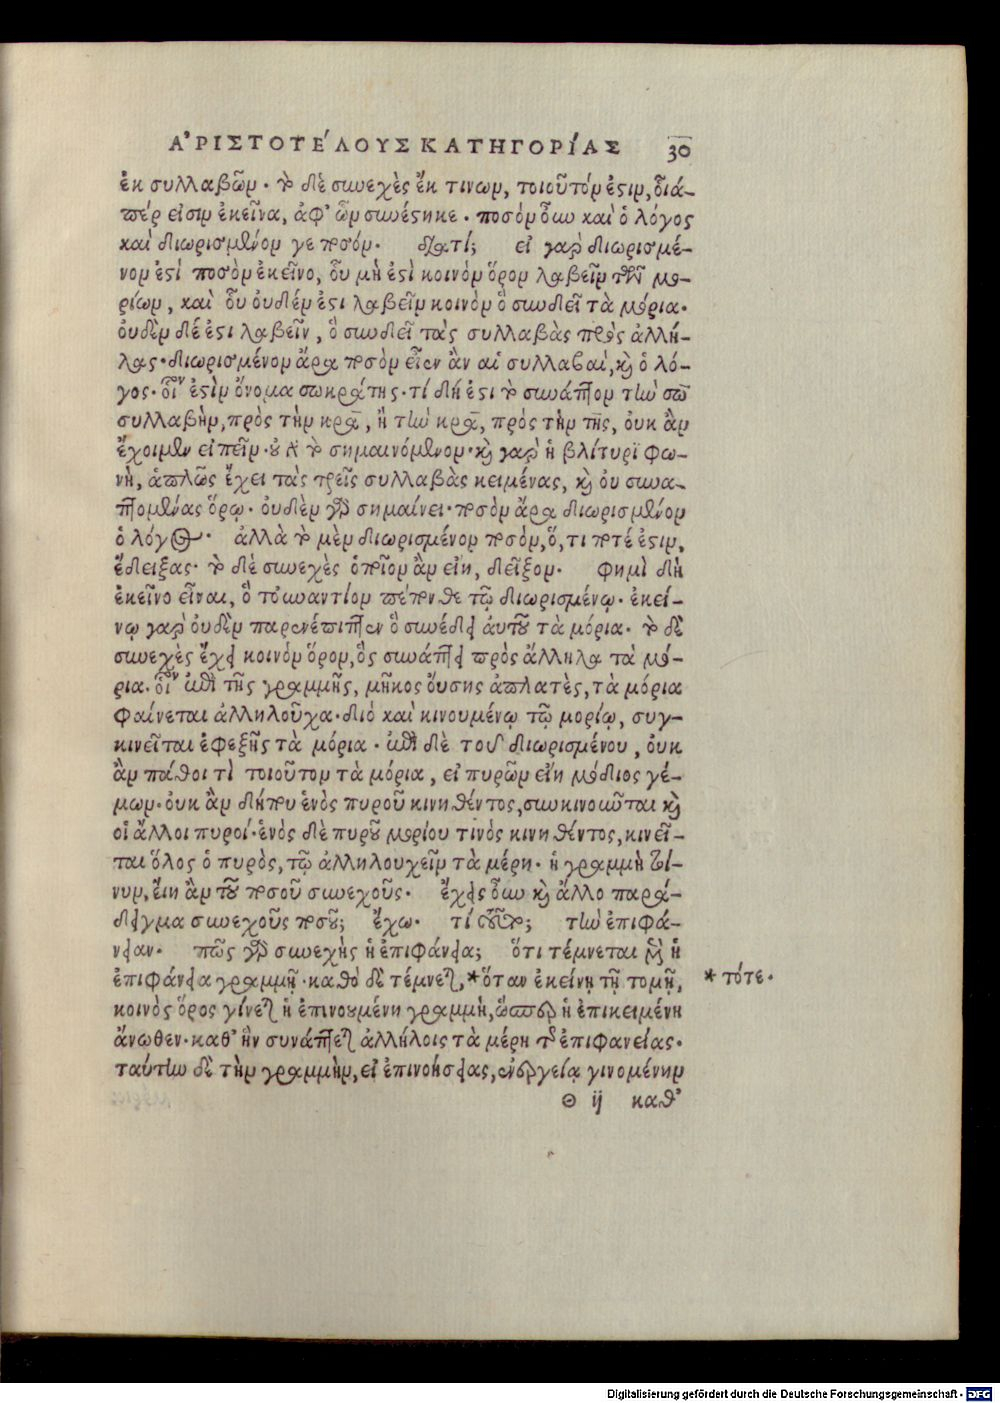 ἈΡΙΣΤΟΤΈΛΟΥΣ ΚΑΤΗΓΟΡΊΑΣ 30
ἐκ συλλαβῶν. τὸ δὲ συνεχὲς ἔκ τινων, τοιοῦτόν ἐστιν, διά-
περ εἰσιν ἐκεῖνα, ἀφ' ὧν συνέστηκε. ποσὸν οὖν καὶ ὁ λόγος
καὶ διωρισμένον γε ποσόν. διατί; εἰ γὰρ διωρισμέ-
νον ἐστὶ ποσὸν ἐκεῖνο, οὗ μή ἐστι κοινὸν ὅρον λαβεῖν τῶν μο-
ρίων, καὶ οὗ οὐδέν ἐστι λαβεῖν κοινὸν ὃ συνδεῖ τὰ μόρια.
οὐδὲν δέ ἐστι λαβεῖν, ὃ συνδεῖ τὰς συλλαβὰς πρὸς ἀλλή-
λας. διωρισμένον ἄρα ποσὸν εἶεν ἂν αἱ συλλαβαὶ, καὶ ὁ λό-
γος. οἷον ἐστὶν ὄνομα σωκράτης. τί δή ἐστι τὸ συνάπτον τὴν σω
συλλαβὴν, πρὸς τὴν κρα, ἢ τὴν κρα, πρὸς τὴν της, οὐκ ἂν
ἔχοιμεν εἰπεῖν. οὐδὲ τὸ σημαινόμενον. καὶ γὰρ ἡ βλίτυρϊ φω-
νὴ, ἁπλῶς ἔχει τὰς τρεῖς συλλαβὰς κειμένας, καὶ οὐ συνα-
πτομένας ὅρῳ. οὐδὲν γὰρ σημαίνει. ποσὸν ἄρα διωρισμένον
ὁ λόγος. ἀλλὰ τὸ μὲν διωρισμένον ποσὸν, ὅ, τι ποτέ ἐστιν,
ἔδειξας. τὸ δὲ συνεχὲς ὁποῖον ἂν εἴη, δεῖξον. φημὶ δὴ
ἐκεῖνο εἶναι, ὃ τοὐναντίον πέπονθε τῷ διωρισμένῳ. ἐκεί-
νῳ γὰρ οὐδὲν παρενέπιπτεν ὃ συνέδει αὐτοῦ τὰ μόρια. τὸ δὲ
συνεχὲς ἔχει κοινὸν ὅρον, ὃς συνάπτει πρὸς ἄλληλα τὰ μό-
ρια. οἷον ἐπὶ τῆς γραμμῆς, μῆκος οὔσης ἀπλατὲς, τὰ μόρια
φαίνεται ἀλληλοῦχα. διὸ καὶ κινουμένῳ τῷ μορίῳ, συγ-
κινεῖται ἐφεξῆς τὰ μόρια. ἐπὶ δὲ τοῦ διωρισμένου, οὐκ
ἂν πάθοι τὶ τοιοῦτον τὰ μόρια, εἰ πυρῶν εἴη μόδιος γέ-
μων. οὐκ ἂν δήπου ἑνὸς πυροῦ κινηθέντος, συνκινοῦνται καὶ
οἱ ἄλλοι πυροί. ἑνὸς δὲ πυροῦ μορίου τινὸς κινηθέντος, κινεῖ-
ται ὅλος ὁ πυρὸς, τῷ ἀλληλουχεῖν τὰ μέρη. ἡ γραμμὴ τοί-
νυν, εἴη ἂν τοῦ ποσοῦ συνεχοῦς. ἔχεις οὖν καὶ ἄλλο παρά-
δειγμα συνεχοῦς ποσοῦ; ἔχω. τί τοῦτο; τὴν ἐπιφά-
νειαν. πῶς γὰρ συνεχὴς ἡ ἐπιφάνεια; ὅτι τέμνεται μὲν ἡ
ἐπιφάνεια γραμμῇ. καθὸ δὲ τέμνεται, *ὅταν ἐκείνῃ τῇ τομῇ, * τότε.
κοινὸς ὅρος γίνεται ἡ ἐπινουμένη γραμμὴ, ὥσπερ ἡ ἐπικειμένη
ἄνωθεν. καθ' ἣν συνάπτεται ἀλλήλοις τὰ μέρη τῆς ἐπιφανείας.
ταύτην δὲ τὴν γραμμὴν, εἰ ἐπινοήσειας, ἐνεργείᾳ γινομένην
Θ ij καθ'
Digitalisierung gefördert durch die Deutsche Forschungsgemeinschaft - DFG